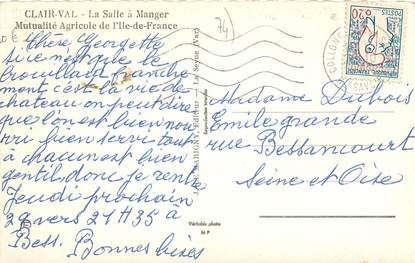 CLAIR-VAL - La Salle à Manger
Mutualité Agricole de l'Ile-de-France
74
Chère Georgette
si ce n'est que le
brouillard franche
ment c'est la vie de
chateau on peut dire
que l'on est bien nou
rri bien servi tout
à chacun est bien
gentil, donc je rentre
Jeudi prochain
29 vers 21H35 a
Bess. Bonnes bises
Véritable photo
MP
0,20
POSTES
Madame Dubois
Emile grande
rue Bessancourt
Seine et Oise